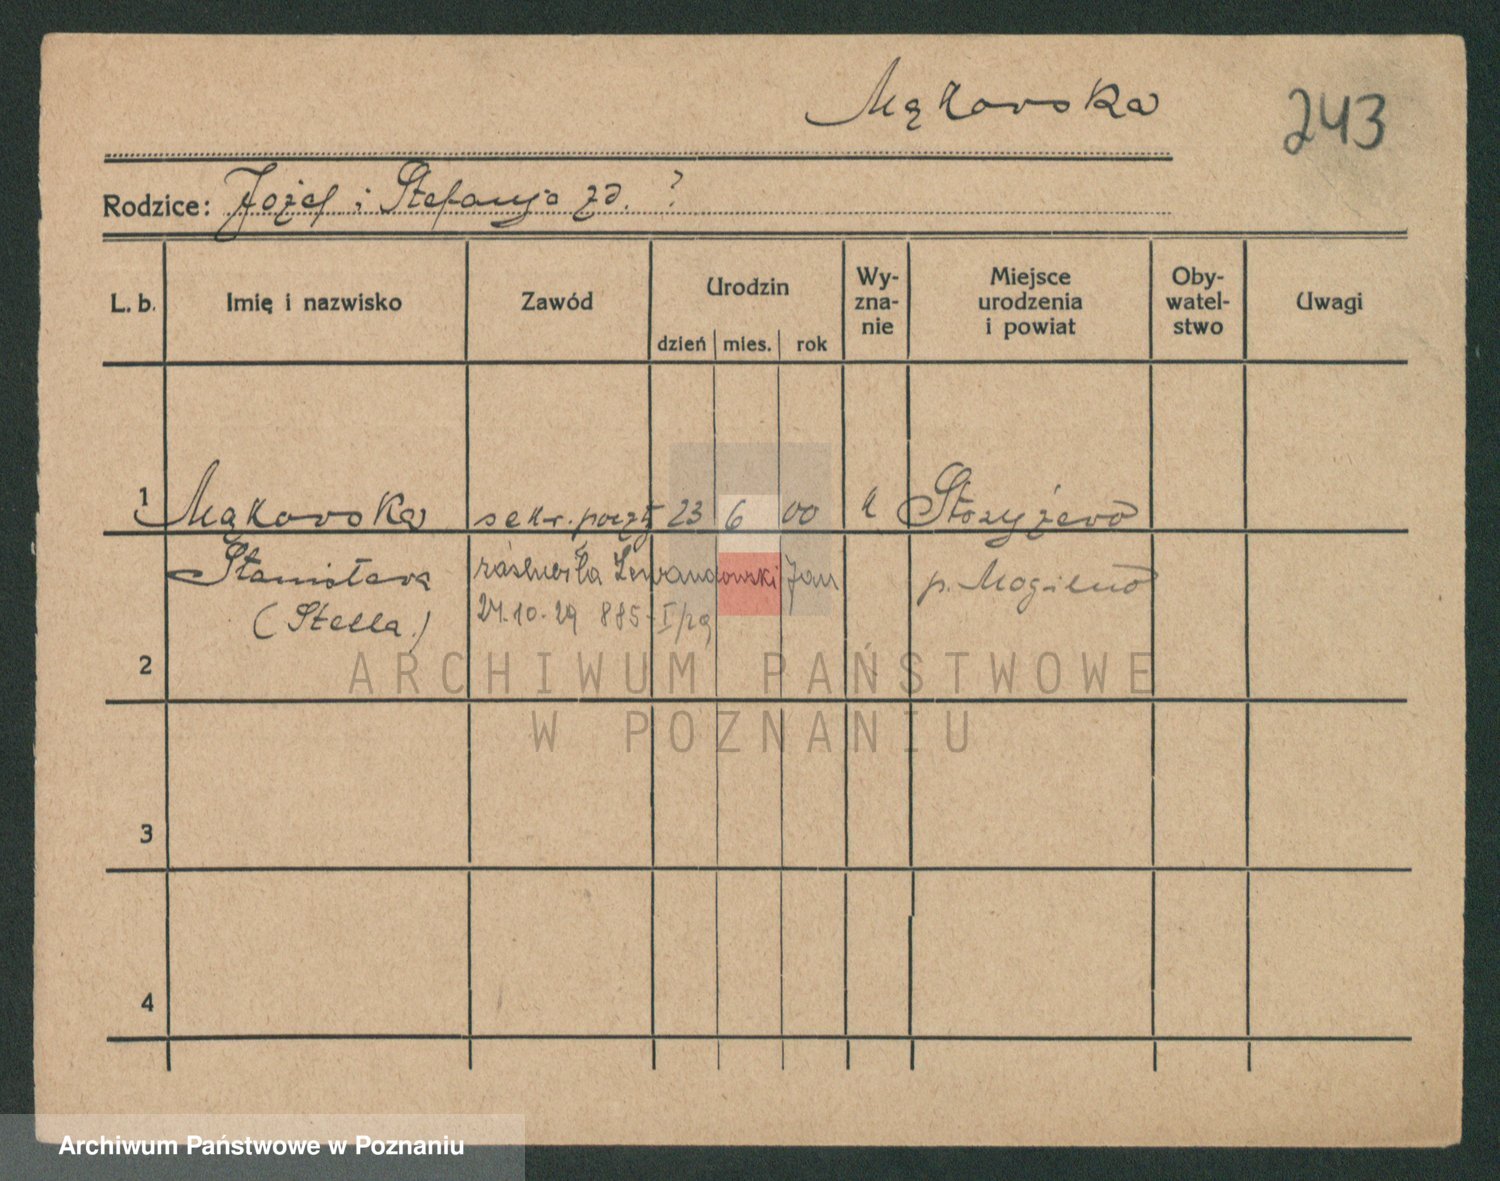 Mąkowska
243
Rodzice: Józef i Stefanja zd. ?
L. b. Imię i nazwisko Zawód Urodzin Wy-zna-nie Miejsce urodzenia i powiat Oby-watel-stwo Uwagi
dzień mies. rok
1 Mąkowska sekr. poczty 23 6 00 k
Stanisława zaślubiła Lewandowski Jan p. Mogilno
(Stella) 24.10.29 885
2
ARCHIWUM PAŃSTWOWE
W POZNANIU
3
4
Archiwum Państwowe w Poznaniu